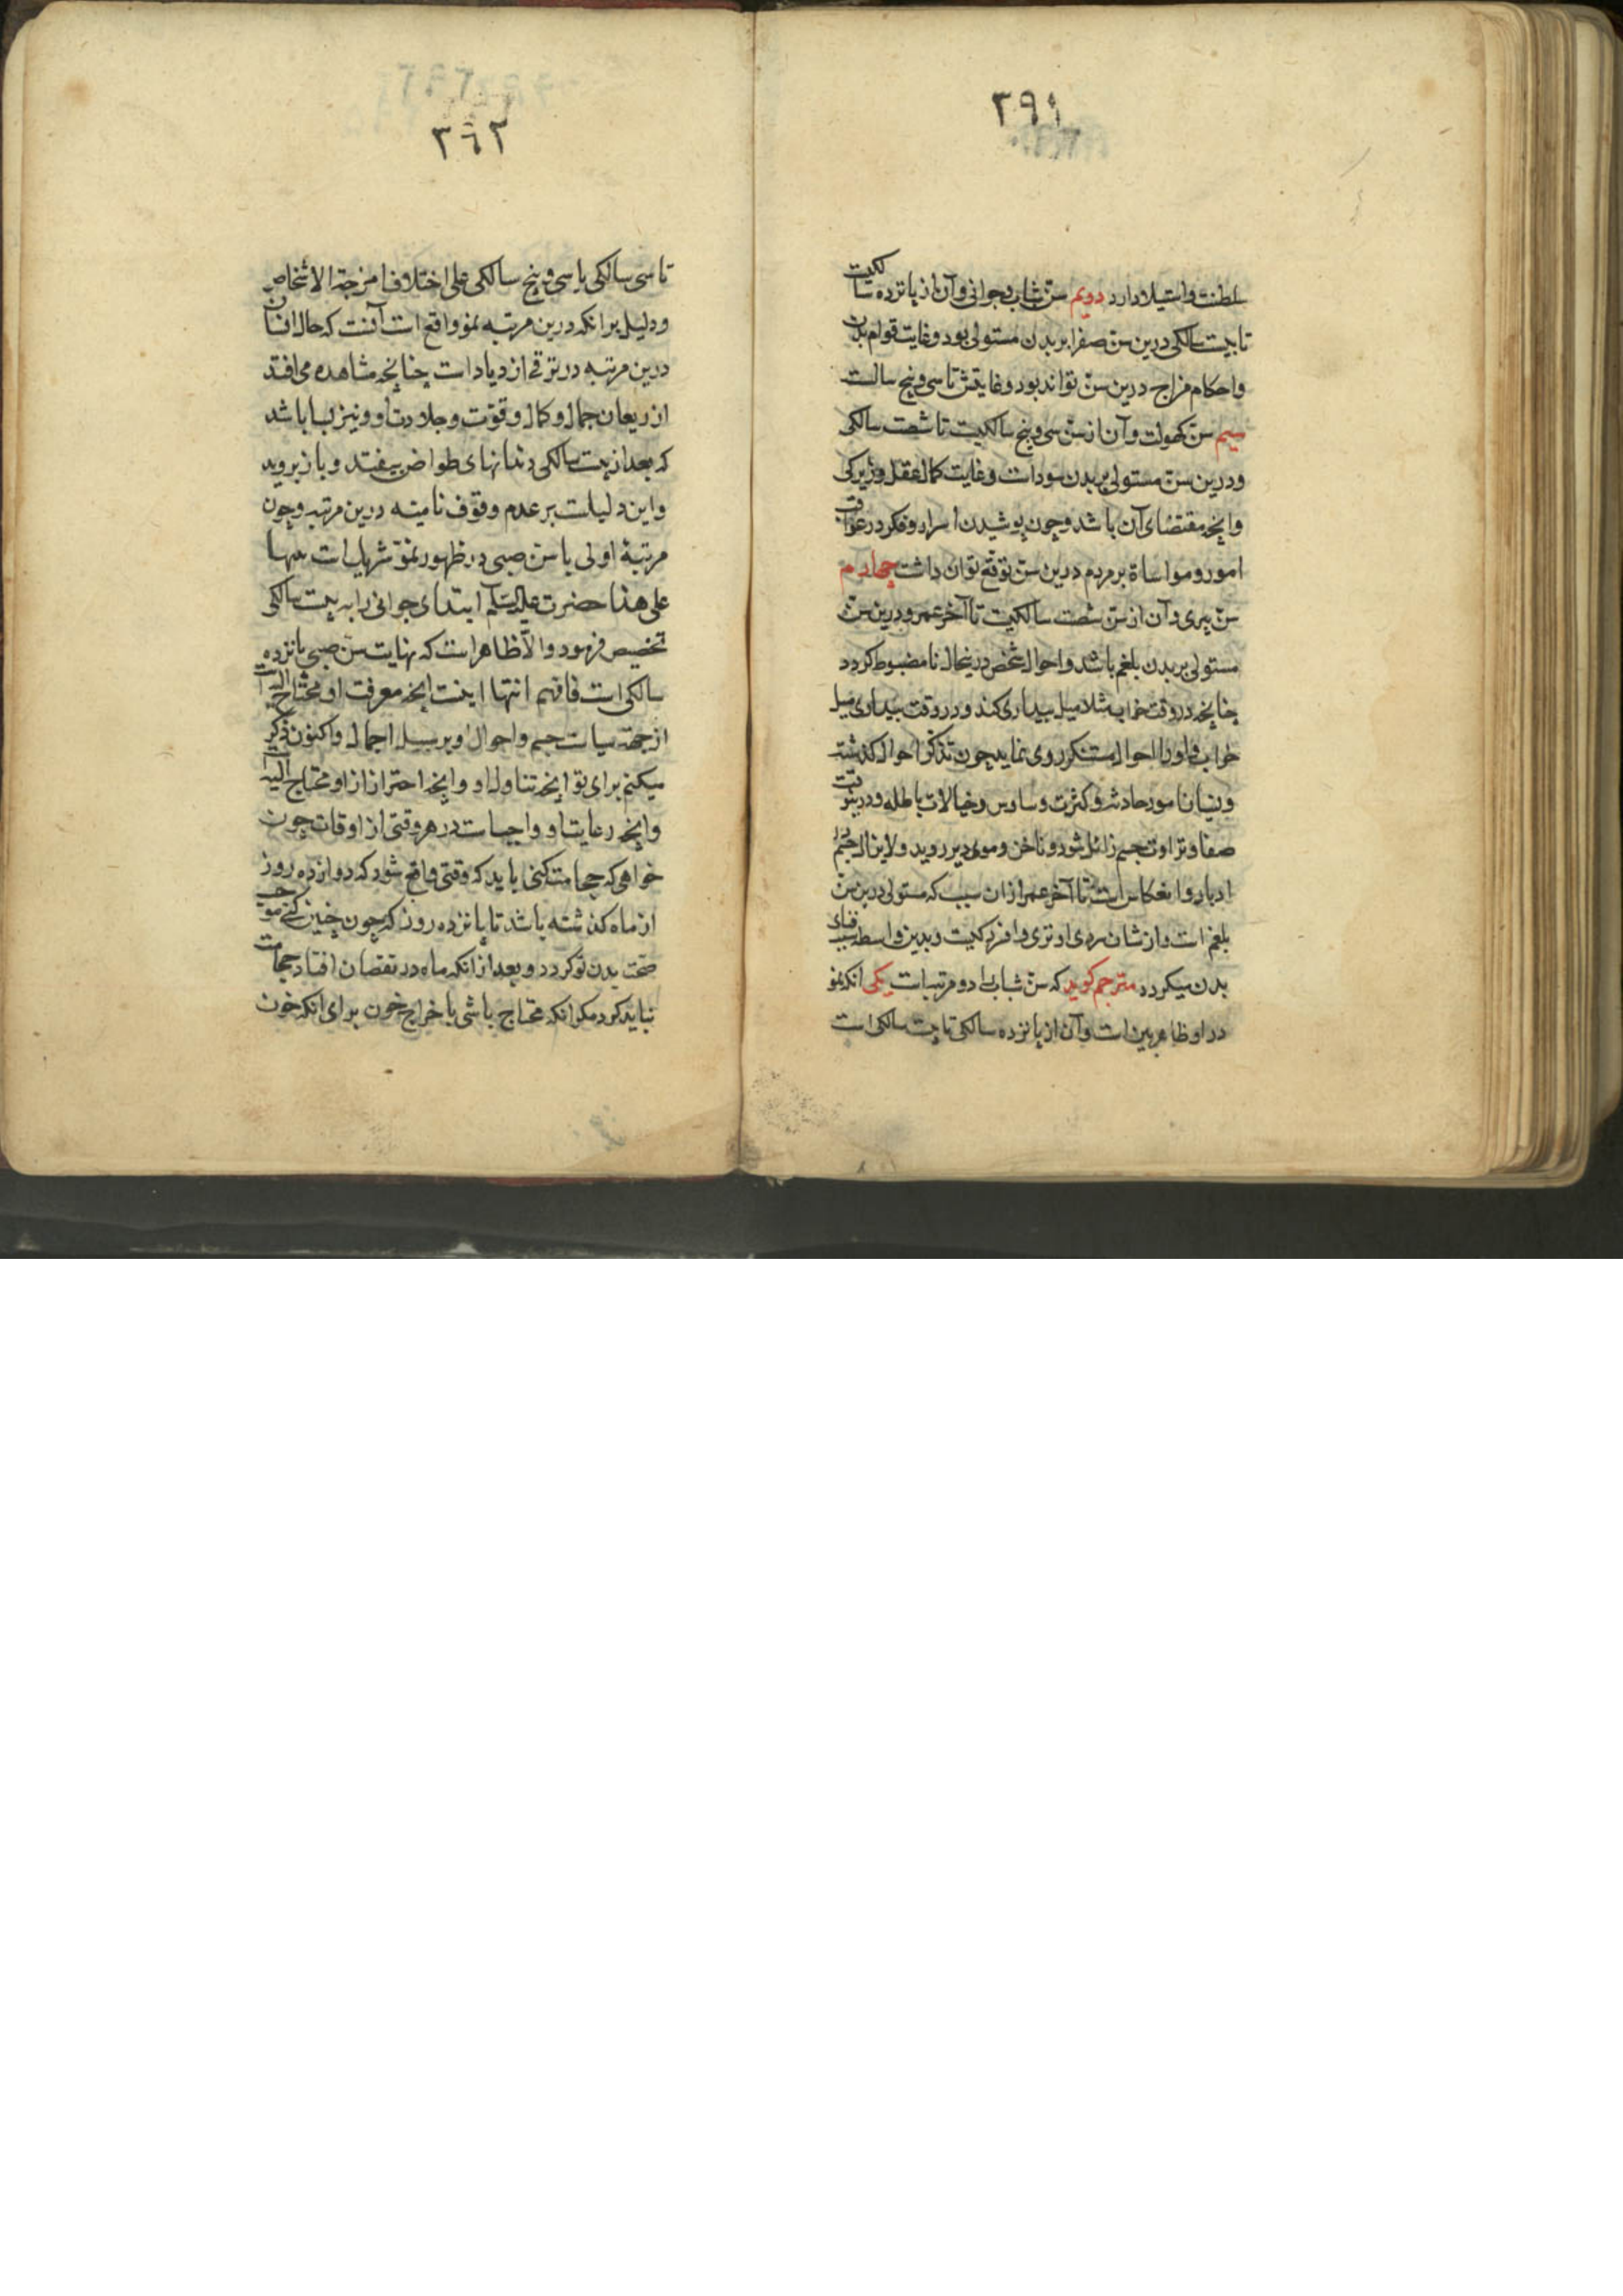 ٢٩١
سلطنت و استیلا دارد دویم سنّ شباب و جوانی و آن از پانزده سالکیست
تا بیست سالکی درین سنّ صفرا بر بدن مستولی بود و غایت قوام بدن
و احکام مزاج درین سنّ تواند بود و غایتش تا سی و پنج سالست
سیم سنّ کهولت و آن از سنّ سی و پنج سالکیست تا شصت سالکی
و درین سنّ مستولی بر بدن سوداست و غایت کمال عقل و زیرکی
و آنچه مقتضای آن باشد و چون پوشیدن اسرار و فکر در عواقب
امور و مواساة بر مردم درین سنّ توقّع توان داشت چهارم
سنّ پیری و آن از سنّ شصت سالکیست تا آخر عمر و درین سنّ
مستولی بر بدن بلغم باشد و احوال شخص درینحال نامضبوط کردد
چنانچه در وقت خواب مثلا میل بیداری کند و در وقت بیداری میل
خواب و او را احوال مستنکر روی نماید چون تذکّر احوال کذشته
و نسیان امور حادثه و کثرت وساوس و خیالات باطله و درینوقت
صفا و تراوت جسم زائل شود و ناخن و موی دیر روید و لایزال جسم در
ادبار و انعکاس است تا آخر عمر از ان سبب که مستولی درین سنّ
بلغم است و از شان سردی او تری و افزردکیست و بدین واسطه سبب فنای
بدن میکردد مترجم کوید که سنّ شباب را دو مرتبه است یکی انکه نمو
در او ظاهر بین است و آن از پانزده سالکی تا بیست سالکی است
٣٩٢
تا سی سالکی یا سی و پنج سالکی علی اختلاف امزجة الاشخاص
و دلیل بر انکه درین مرتبه نمو واقع است آنست که حال انسان
درین مرتبه در ترقی ازدیاد است چنانچه مشاهده می افتد
از ریعان جمال و کمال و قوّت و جلادت او و نیز بسا باشد
که بعد از بیست سالکی دندانهای طواحن بیفتد و باز بروید
و این دلیلست بر عدم وقوف نامیه درین مرتبه و چون
مرتبهٔ اولی با سنّ صبی در ظهور نموّ شریک است
علی هذا حضرت علیه السّلام ابتدای جوانی را به بیست سالکی
تخصیص فرمود و الّا ظاهر است که نهایت سنّ صبی پانزده
سالکی است فافهم انتها اینست آنچه معرفت او محتاج الیه است
از جهة سیاست جسم و احوال او بر سبیل اجمال و اکنون ذکر
میکنم برای تو آنچه تناول او و آنچه احتراز از او محتاج الیه است
و آنچه رعایت او واجبست در هر وقتی از اوقات چون
خواهی که حجامت کنی باید که وقتی واقع شود که دوازده روز
از ماه کذشته باشد تا پانزده روز که چون چنین کنی موجب
صحّت بدن تو کردد و بعد از انکه ماه در نقصان افتاد حجامت
نباید کرد مکر انکه محتاج باشی باخراج خون برای انکه خون